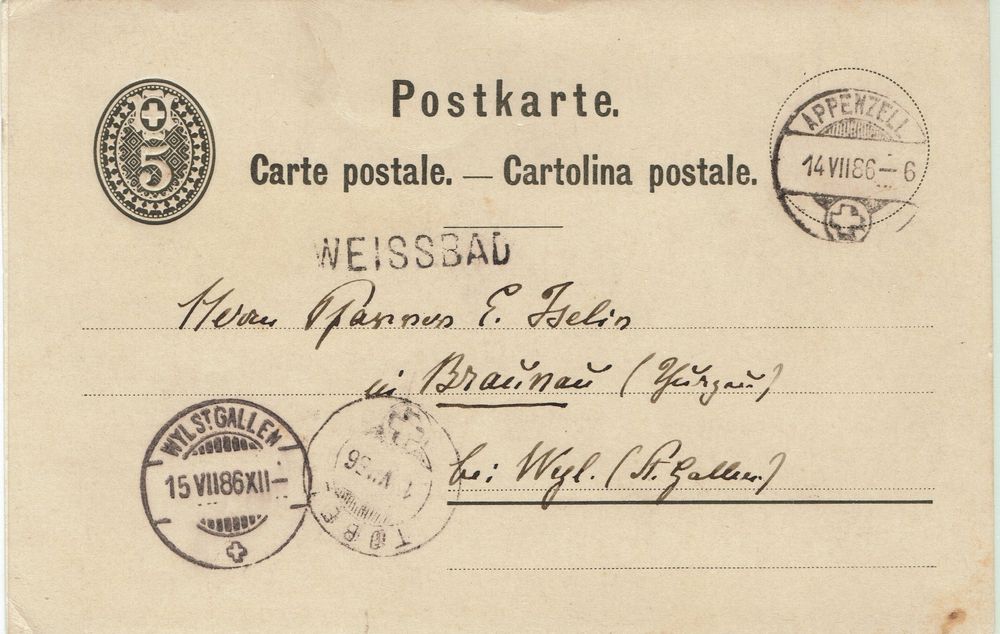 Postkarte.
5
Carte postale. — Cartolina postale.
APPENZELL
14 VII 86 – 6
WEISSBAD
Herrn Pfarrer E. Iselin
in Braunau (Thurgau)
bei Wyl. (St. Gallen)
WYL ST. GALLEN
15 VII 86 XII –